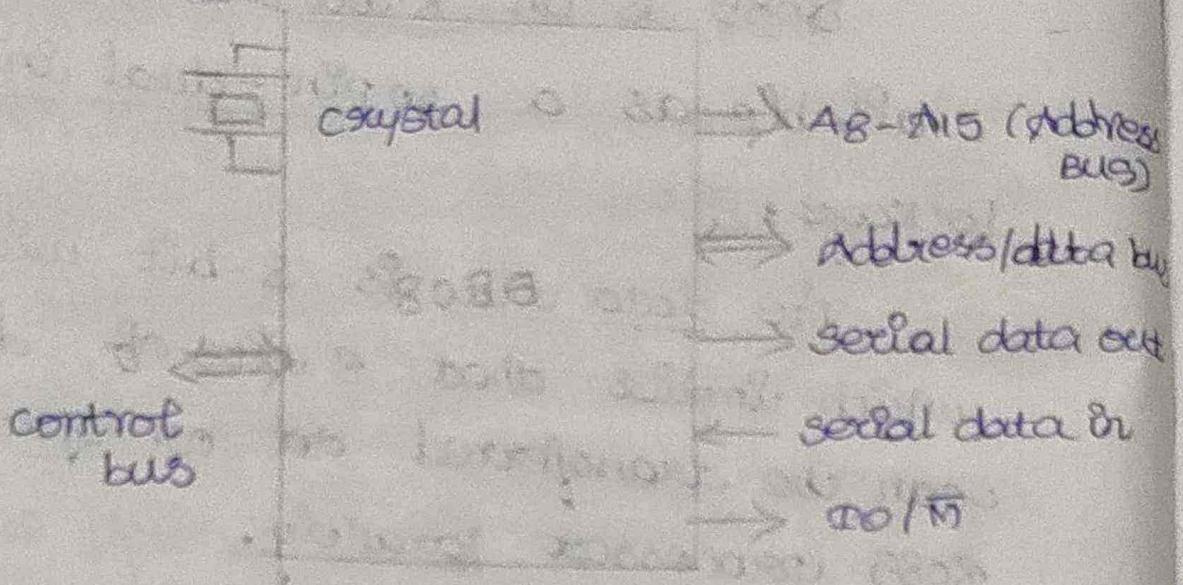 crystal
A8-A15 (Address
Bus)
Address/data bus
serial data out
serial data in
control
bus
IO/M̅